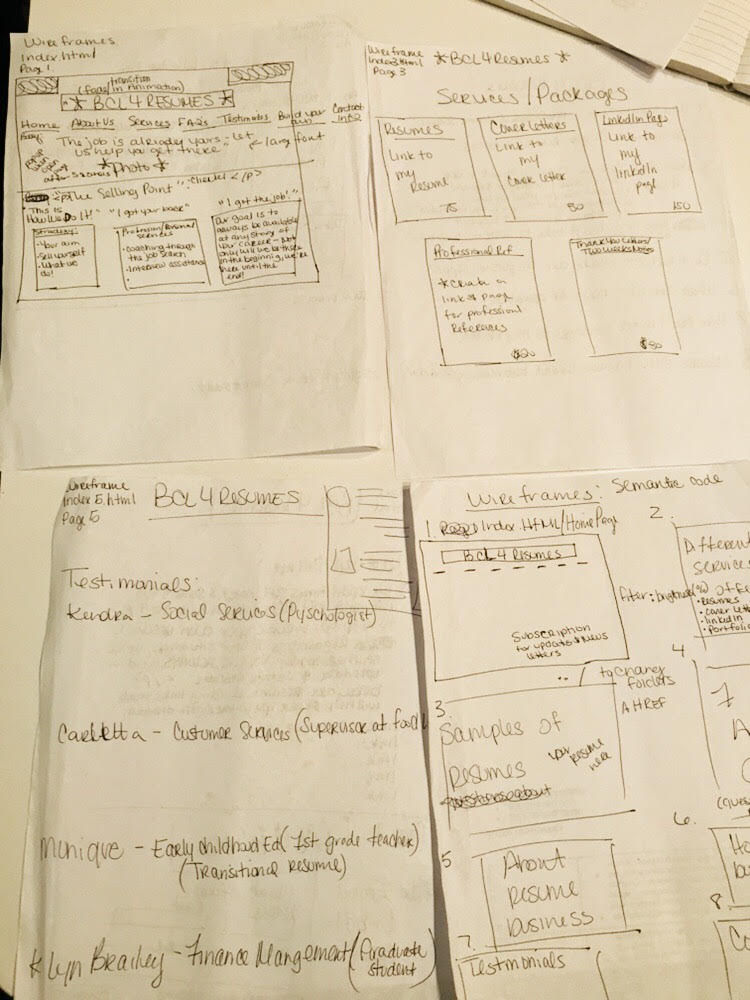 Wireframes
Index.html
Page 1
transition
(fade/in Animation)
*BCL 4 RESUMES*
Home About Us Services FAQs Testimonies Build your own Contact Info
The job is already yours - let
us help you get there
← large font
open
after 5 seconds
*Photo*
The Selling Point" </p>
"This is
How We Do It!" "I got your back" "I got the job!"
Strategy
• Your aim
• Sell yourself
• What we
do!
Professional/Personal
services
• Coaching through
the job search
• Interview assistance
Our goal is to
always be available
at any story of
your career - Not
only will we be there
in the beginning, we're
here until the
end!
Wireframe
Index3.html
Page 3
*BCL4Resumes*
Services/Packages
Resumes
Link to
my
Resume
75
Cover Letters
Link to
my
Cover letter
50
LinkedIn Page
Link to
my
linkedIn
page
150
Professional Ref
*Create a
link & page
for professional
References
$20
Thank You Letters/
Two Weeks Notes
$50
Wireframe
Index 5.html
Page 5
BCL 4 RESUMES
Testimonials:
Kendra - Social Services (Pyschologist)
Carletta - Customer Services (Supervisor at food
Monique - Early childhood Ed (1st grade teacher)
(Transitional resume)
* Lyn Brailey - Finance Mangement (Graduate
student)
Wireframes: Semantic code
1. Index.HTML/Home Page
BCL 4 Resumes
Subscription
for updates & News
letters
2.
Different
services
offe
• Resumes
• cover lett
• linkedIn
• portfoli
../ to change
folders
A HREF
3.
Samples of
resumes
your
resume
here
4
5
About
resume
business
6.
7.
Testimonials
8.
Co